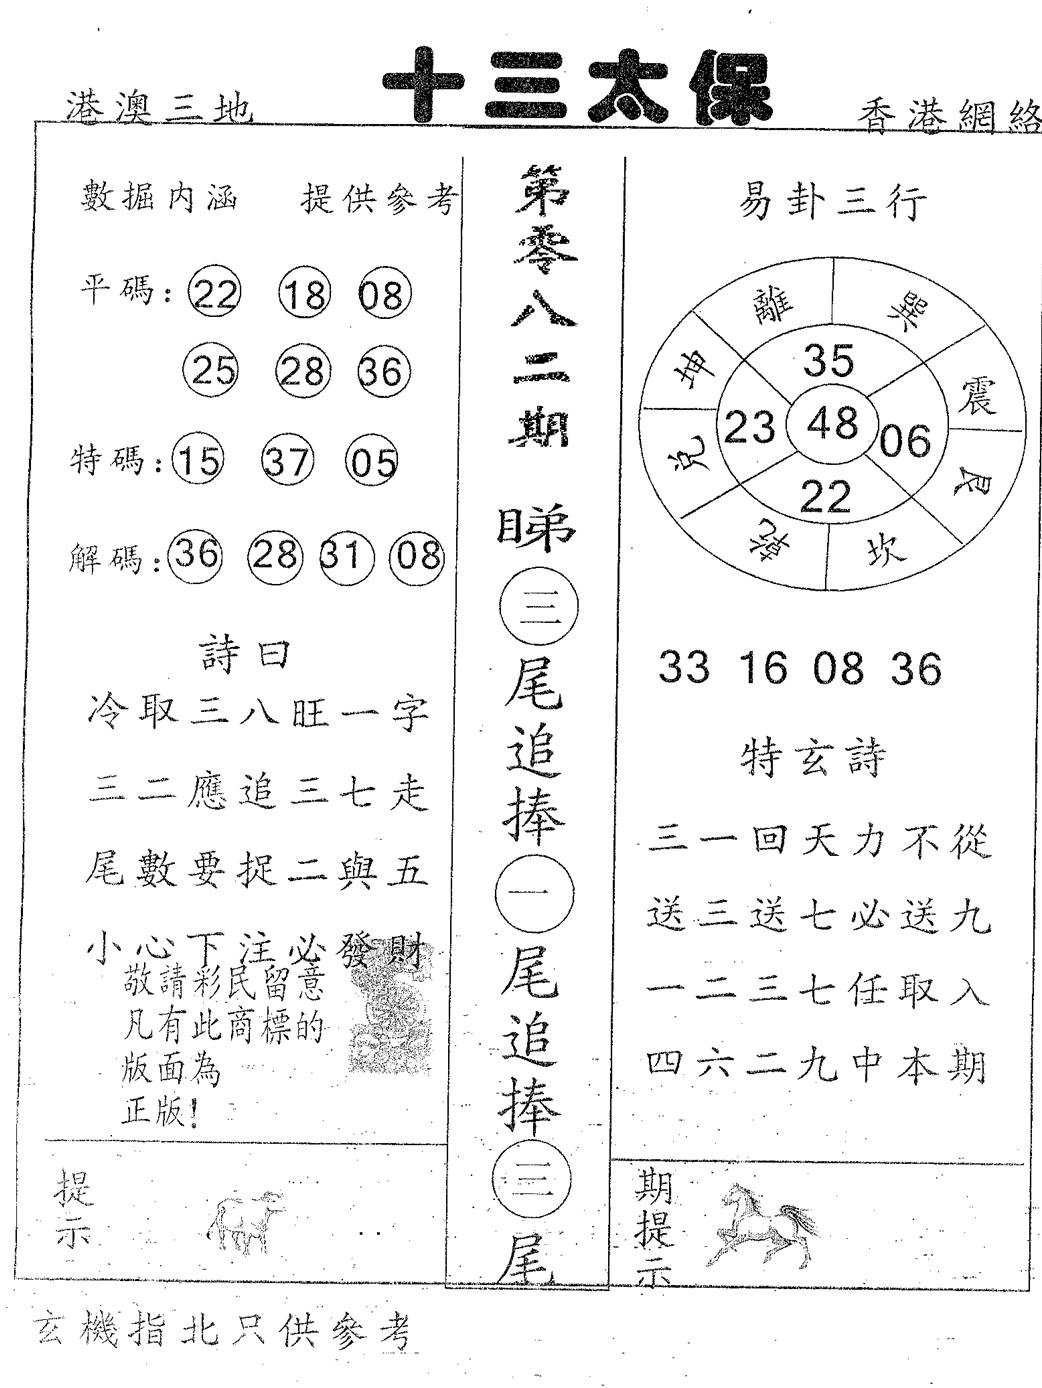 十三太保
港澳三地
香港網絡
數掘内涵 提供參考
平碼: 22 18 08
25 28 36
特碼: 15 37 05
解碼: 36 28 31 08
詩曰
冷取三八旺一字
三二應追三七走
尾數要捉二與五
小心下注必發財
敬請彩民留意
凡有此商標的
版面為
正版!
提示
第零八二期
睇三尾追捧一尾追捧三尾
易卦三行
離 巽
坤 震
兌 艮
乾 坎
35
23 48 06
22
33 16 08 36
特玄詩
三一回天力不從
送三送七必送九
一二三七任取入
四六二九中本期
期提示
玄機指北只供參考